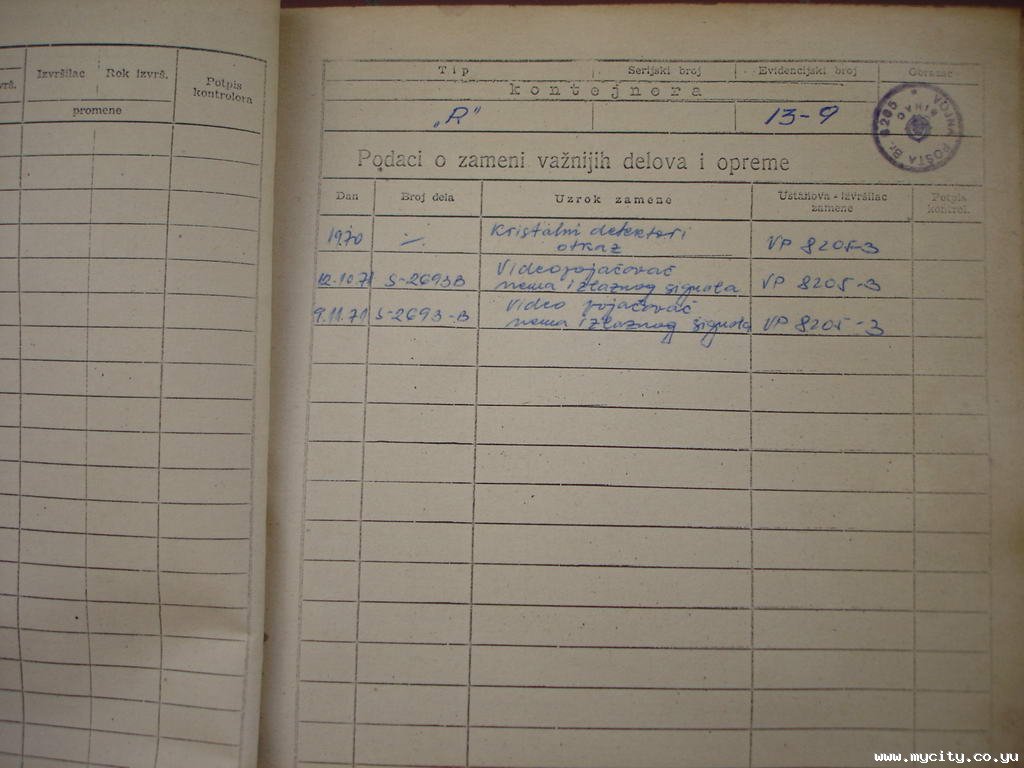 vrš.
Izvršilac
Rok izvrš.
Potpis
kontrolora
promene
Tip
Serijski broj
Evidencijski broj
Obrazac
kontejnera
„R"
13-9
VOJNA POŠTA Br. 8205
BIHAĆ
Podaci o zameni važnijih delova i opreme
Dan
Broj dela
Uzrok zamene
Ustanova - izvršilac
zamene
Potpis
kontrol.
1970
Kristalni detektori
otkaz
VP 8205-3
12.10.71
S-2693B
Videopojačovač
nema izlaznog signala
VP 8205-3
9.11.71
S-2693-B
Video pojačovač
nema izlaznog signala
VP 8205-3
www.mycity.co.yu